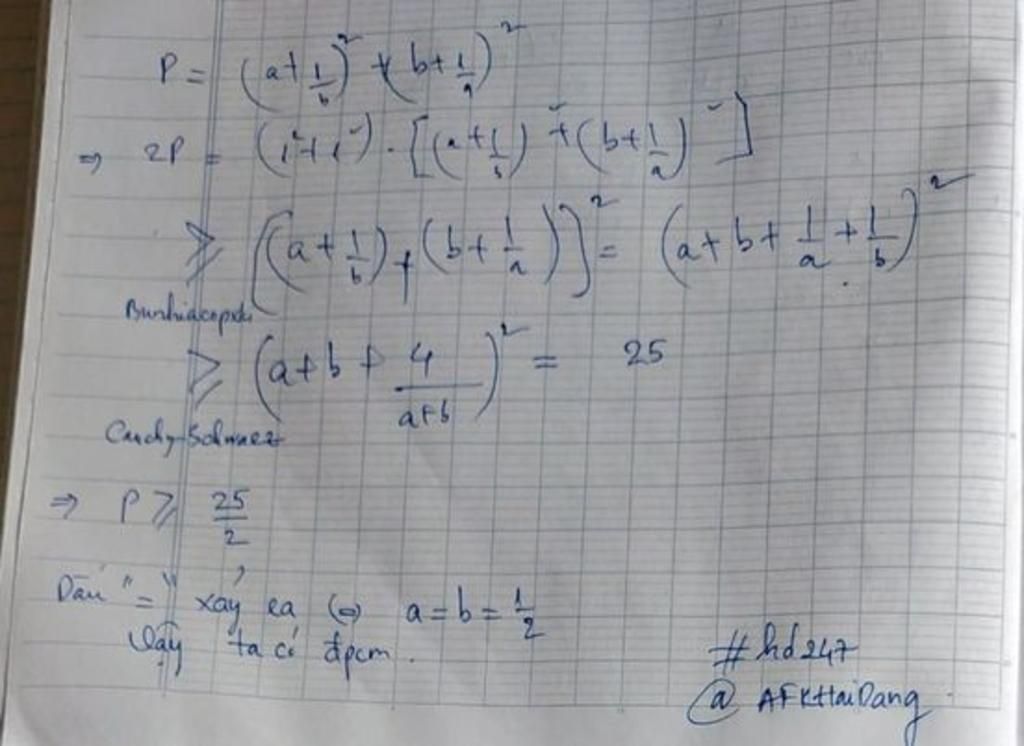 P = (a + 1/b)² + (b + 1/a)²
⇒ 2P = (1² + 1²) . [(a + 1/b)² + (b + 1/a)²]
≥ [(a + 1/b) + (b + 1/a)]² = (a + b + 1/a + 1/b)²
Bunhiacopxki
≥ (a + b + 4/(a+b))² = 25
Cauchy-Schwarz
⇒ P ≥ 25/2
Dấu "=" xảy ra ⇔ a = b = 1/2
Vậy ta có đpcm.
#hd247
@AFKHaiDang